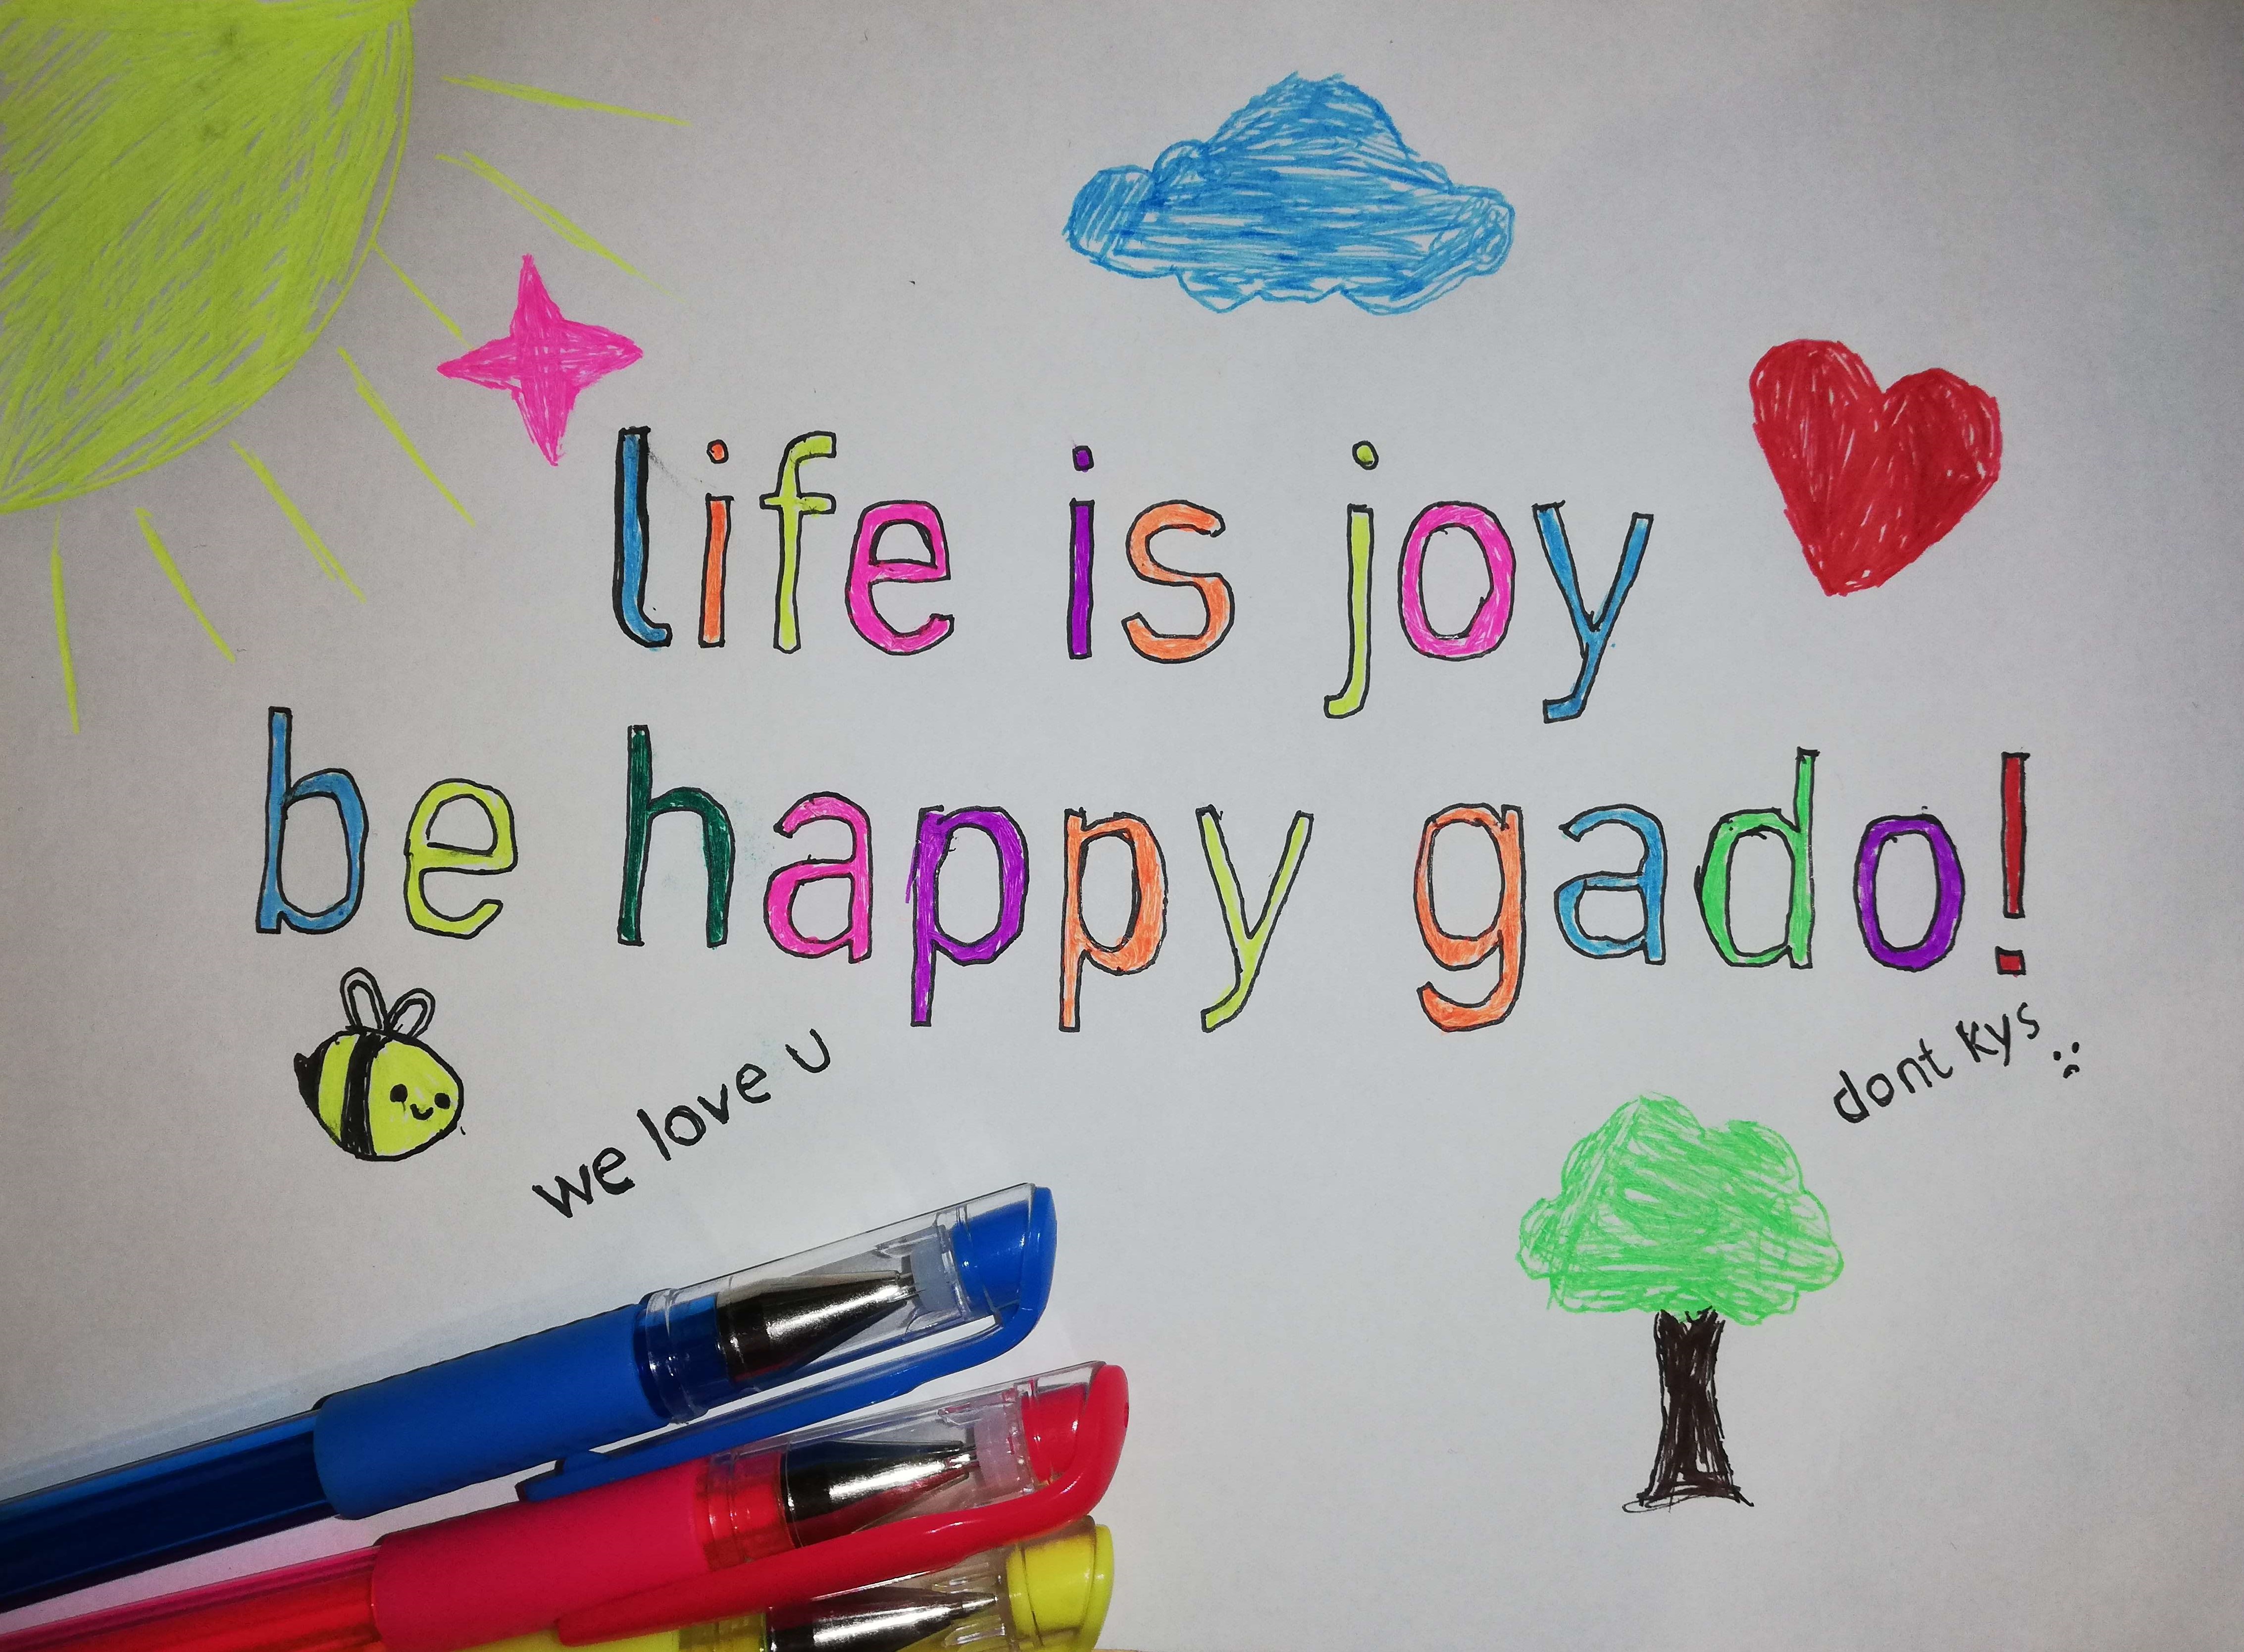 life is joy
be happy gado!
we love u
dont kys :(